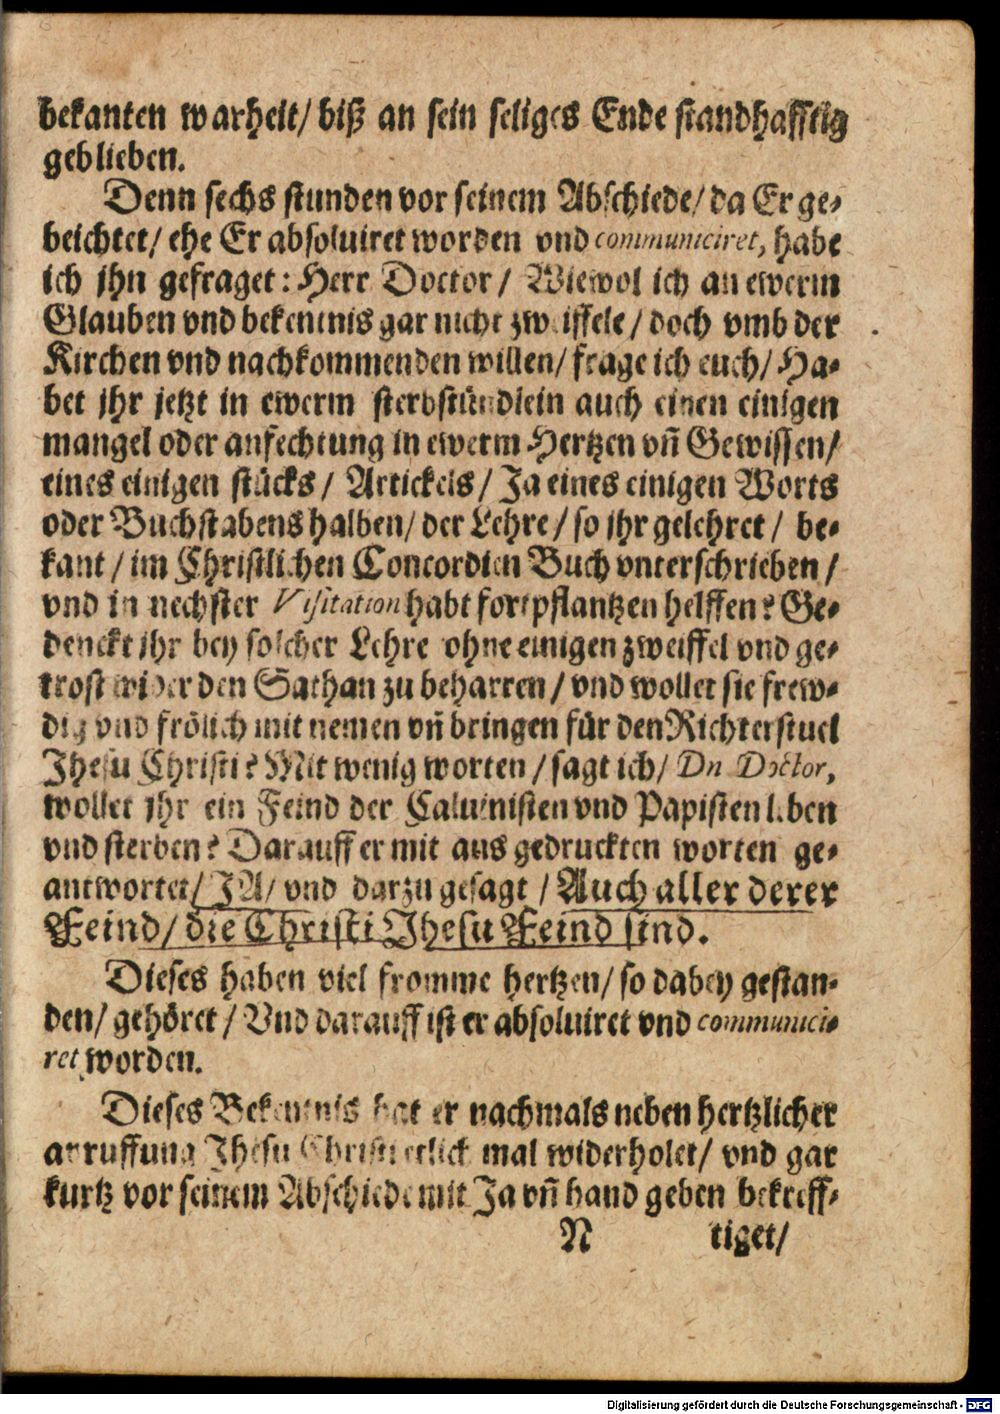 bekanten warheit/ biß an sein seliges Ende standhafftig
geblieben.
Denn sechs stunden vor seinem Abschiede/ da Er ge-
beichtet/ ehe Er absoluiret worden vnd communiciret, habe
ich jhn gefraget: Herr Doctor/ Wiewol ich an ewerm
Glauben vnd bekentnis gar nicht zweiffele/ doch vmb der
Kirchen vnd nachkommenden willen/ frage ich euch/ Ha-
bet jhr jetzt in ewerm sterbstündlein auch einen einigen
mangel oder anfechtung in ewerm Hertzen vn̄ Gewissen/
eines einigen stücks/ Artickels/ Ja eines einigen Worts
oder Buchstabens halben/ der Lehre/ so jhr gelehret/ be-
kant/ im Christlichen Concordien Buch vnterschrieben/
vnd in nechster Visitation habt fortpflantzen helffen? Ge-
denckt jhr bey solcher Lehre ohne einigen zweiffel vnd ge-
trost wider den Sathan zu beharren/ vnd wollet sie frew-
dig vnd frölich mit nemen vn̄ bringen für den Richterstuel
Jhesu Christi? Mit wenig worten/ sagt ich/ Dn Doctor,
wollet jhr ein Feind der Caluinisten vnd Papisten leben
vnd sterben? Darauff er mit ausgedruckten worten ge-
antwortet/ JA/ vnd darzu gesagt/ Auch aller derer
Feind/ die Christi Jhesu Feind sind.
Dieses haben viel fromme hertzen/ so dabey gestan-
den/ gehöret/ Vnd darauff ist er absoluiret vnd communici-
ret worden.
Dieses Bekentnis hat er nachmals neben hertzlicher
anruffung Jhesu Christi etlick mal widerholet/ vnd gar
kurtz vor seinem Abschiede mit Ja vn̄ hand geben bekreff-
N tiget/
Digitalisierung gefördert durch die Deutsche Forschungsgemeinschaft - DFG